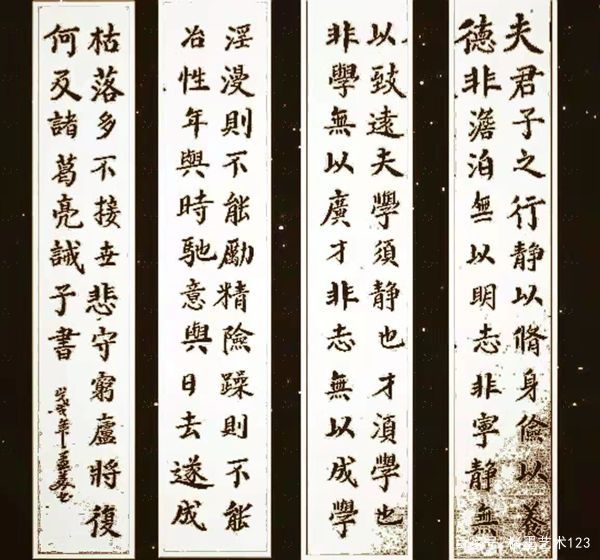 夫君子之行静以脩身儉以養
德非澹泊無以明志非寧静無
以致遠夫學須静也才湏學也
非學無以廣才非志無以成學
淫漫則不能勵精險躁則不能
冶性年與時馳意與日去遂成
枯落多不接世悲守窮廬將復
何及諸葛亮誡子書
艺术123